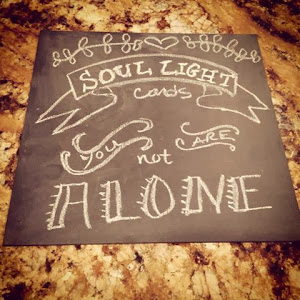 SOUL LIGHT
cards
you ARE
not
ALONE